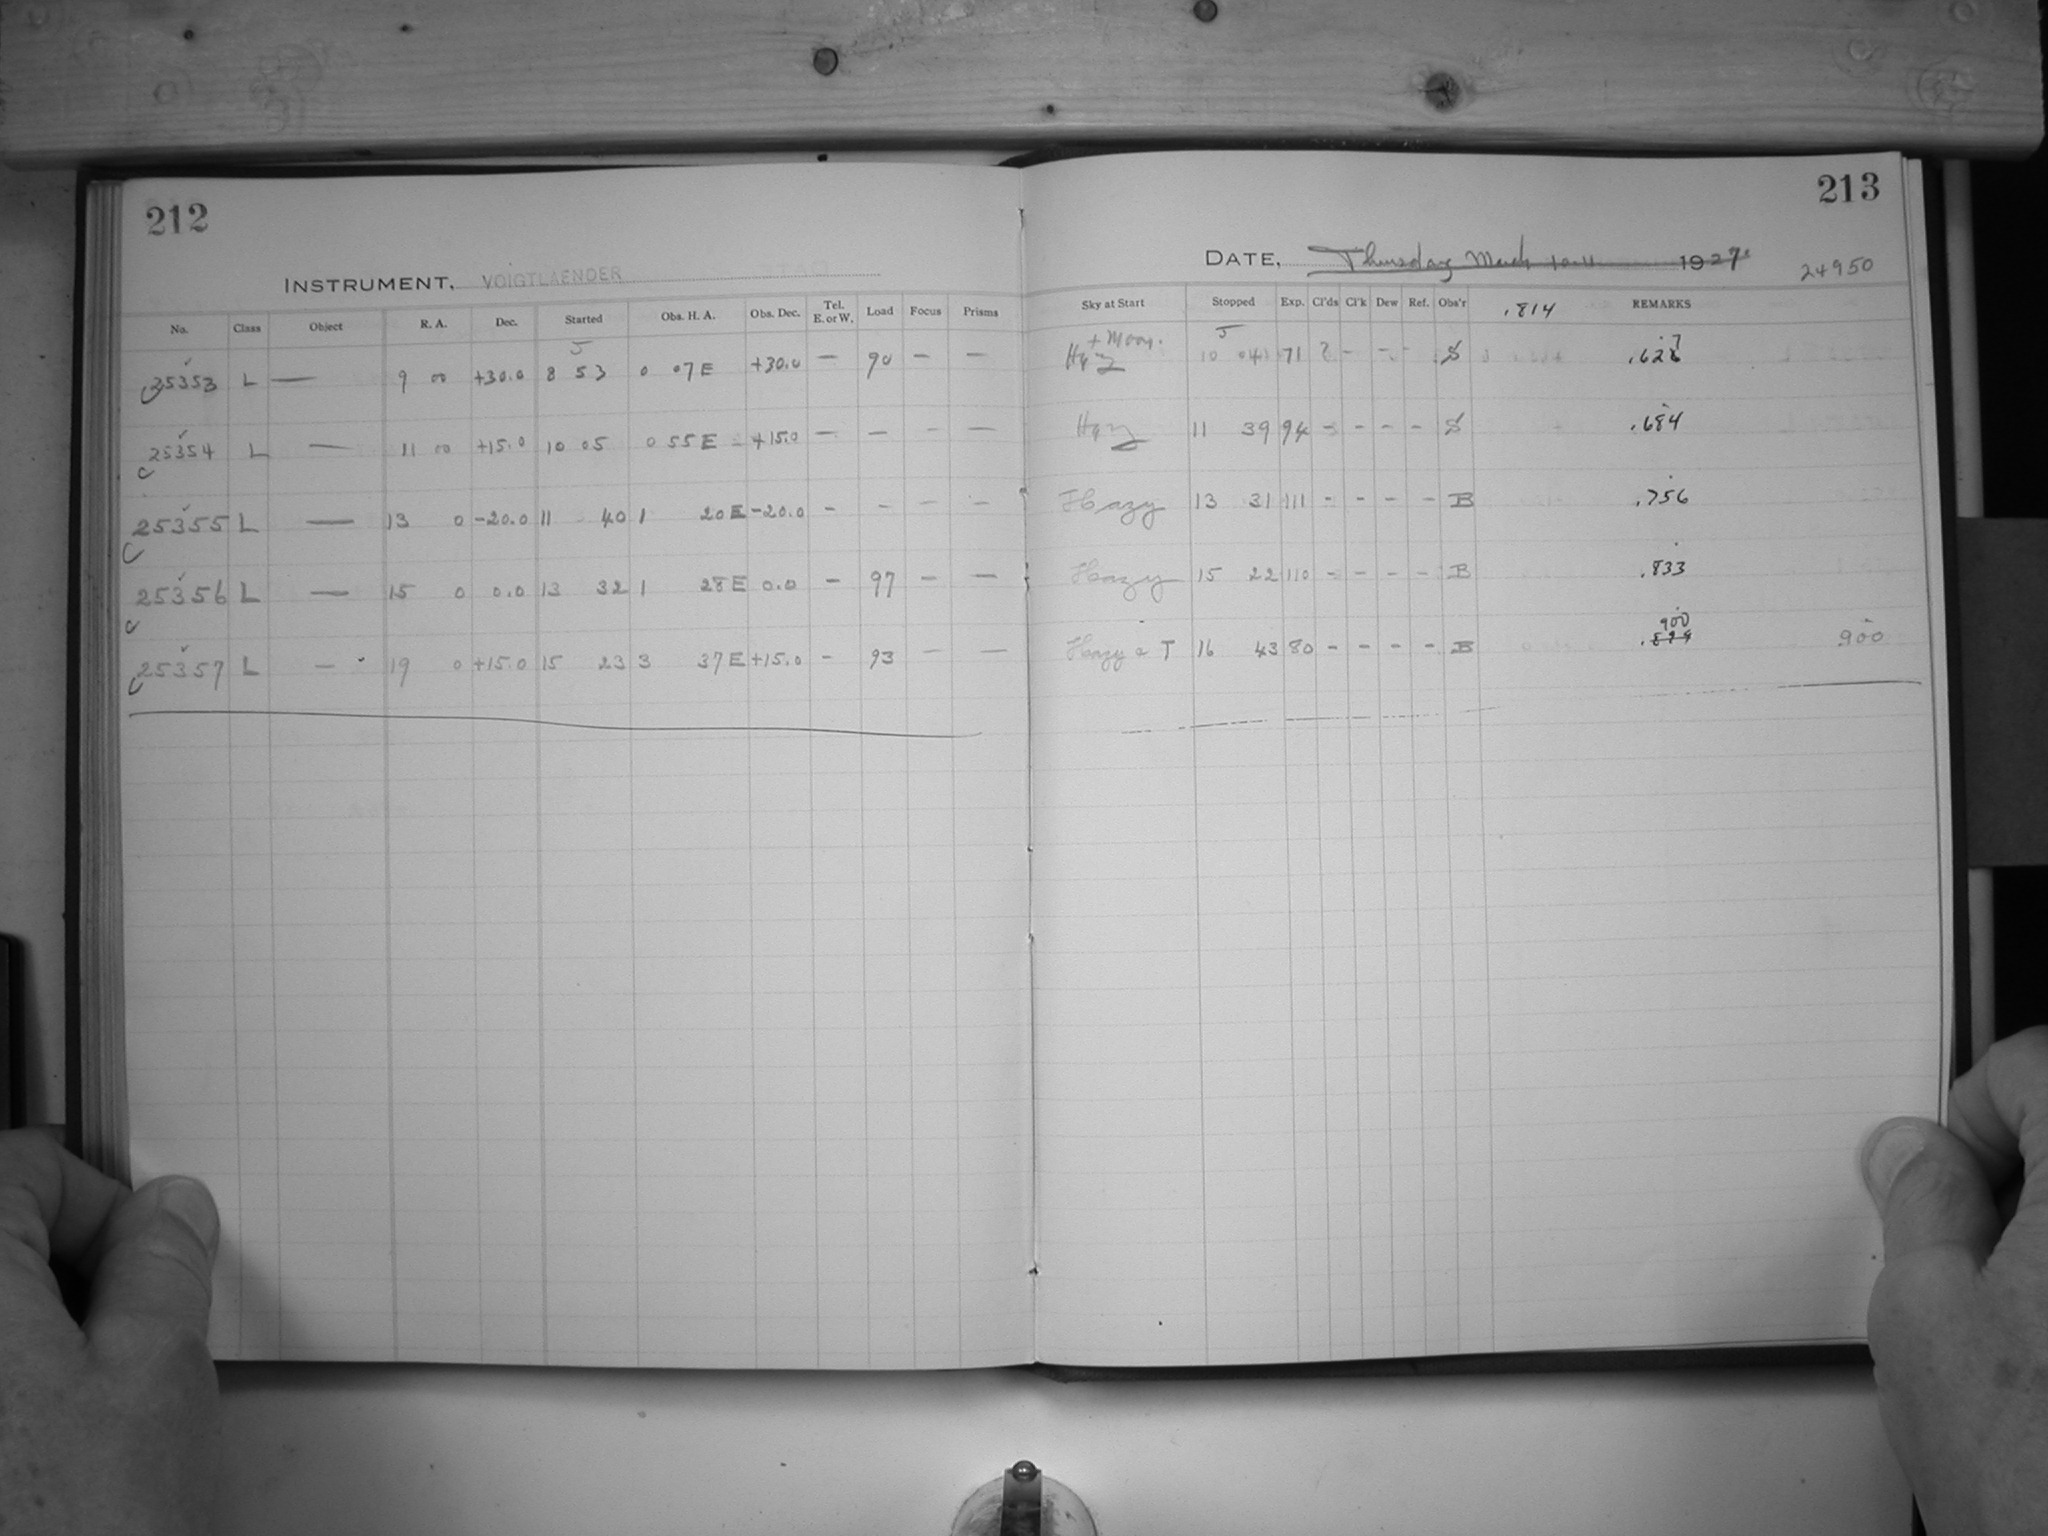 212
INSTRUMENT, VOIGTLAENDER
No. Class Object R. A. Dec. Started Obs. H. A. Obs. Dec. Tel. E. or W. Load Focus Prisms
25353 L — 9 00 +30.0 8 53 0 07 E +30.0 — 90 — —
25354 L — 11 00 +15.0 10 05 0 55 E +15.0 — — — —
25355 L — 13 0 -20.0 11 40 1 20 E -20.0 - - - -
25356 L — 15 0 0.0 13 32 1 28 E 0.0 - 97 - —
25357 L — 19 0 +15.0 15 23 3 37 E +15.0 - 93 - —
213
DATE, Thursday March 10-11 1927
24950
Sky at Start Stopped Exp. Cl'ds Cl'k Dew Ref. Obs'r .814 REMARKS
Hazy + Moon. 10 04 71 ? - - - S .627
Hazy 11 39 94 - - - - S .684
Hazy 13 31 111 - - - - B .756
Hazy 15 22 110 - - - - B .833
900
Hazy & T 16 43 80 - - - - B .899 900